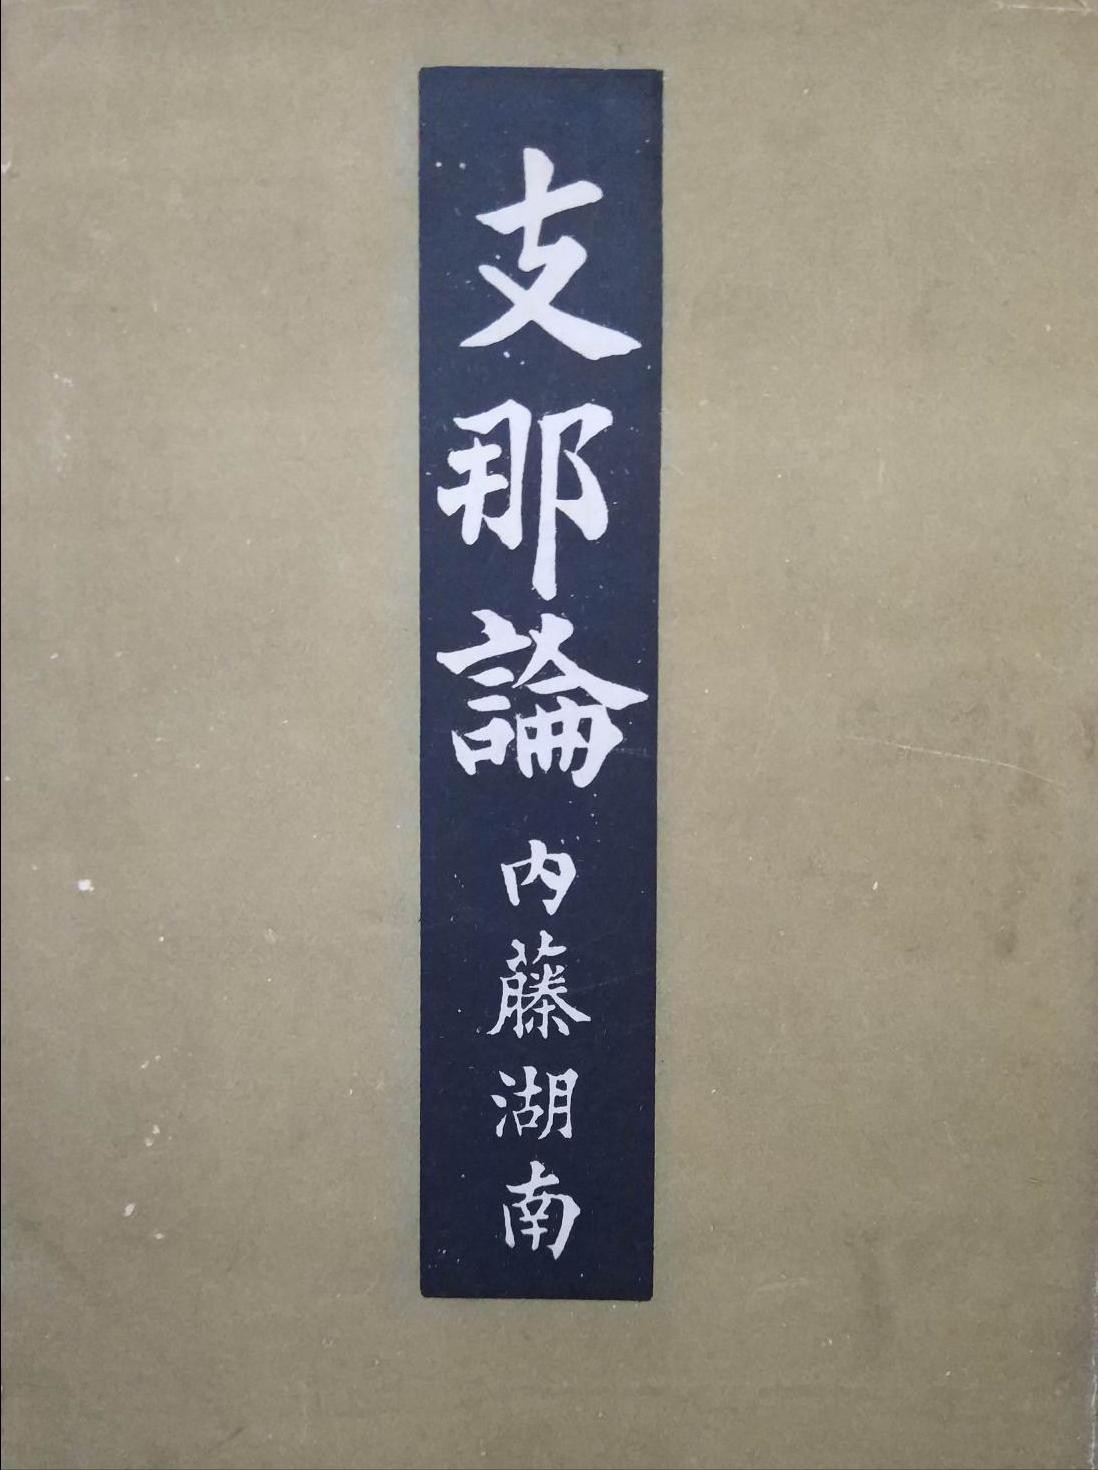 支那論 内藤湖南